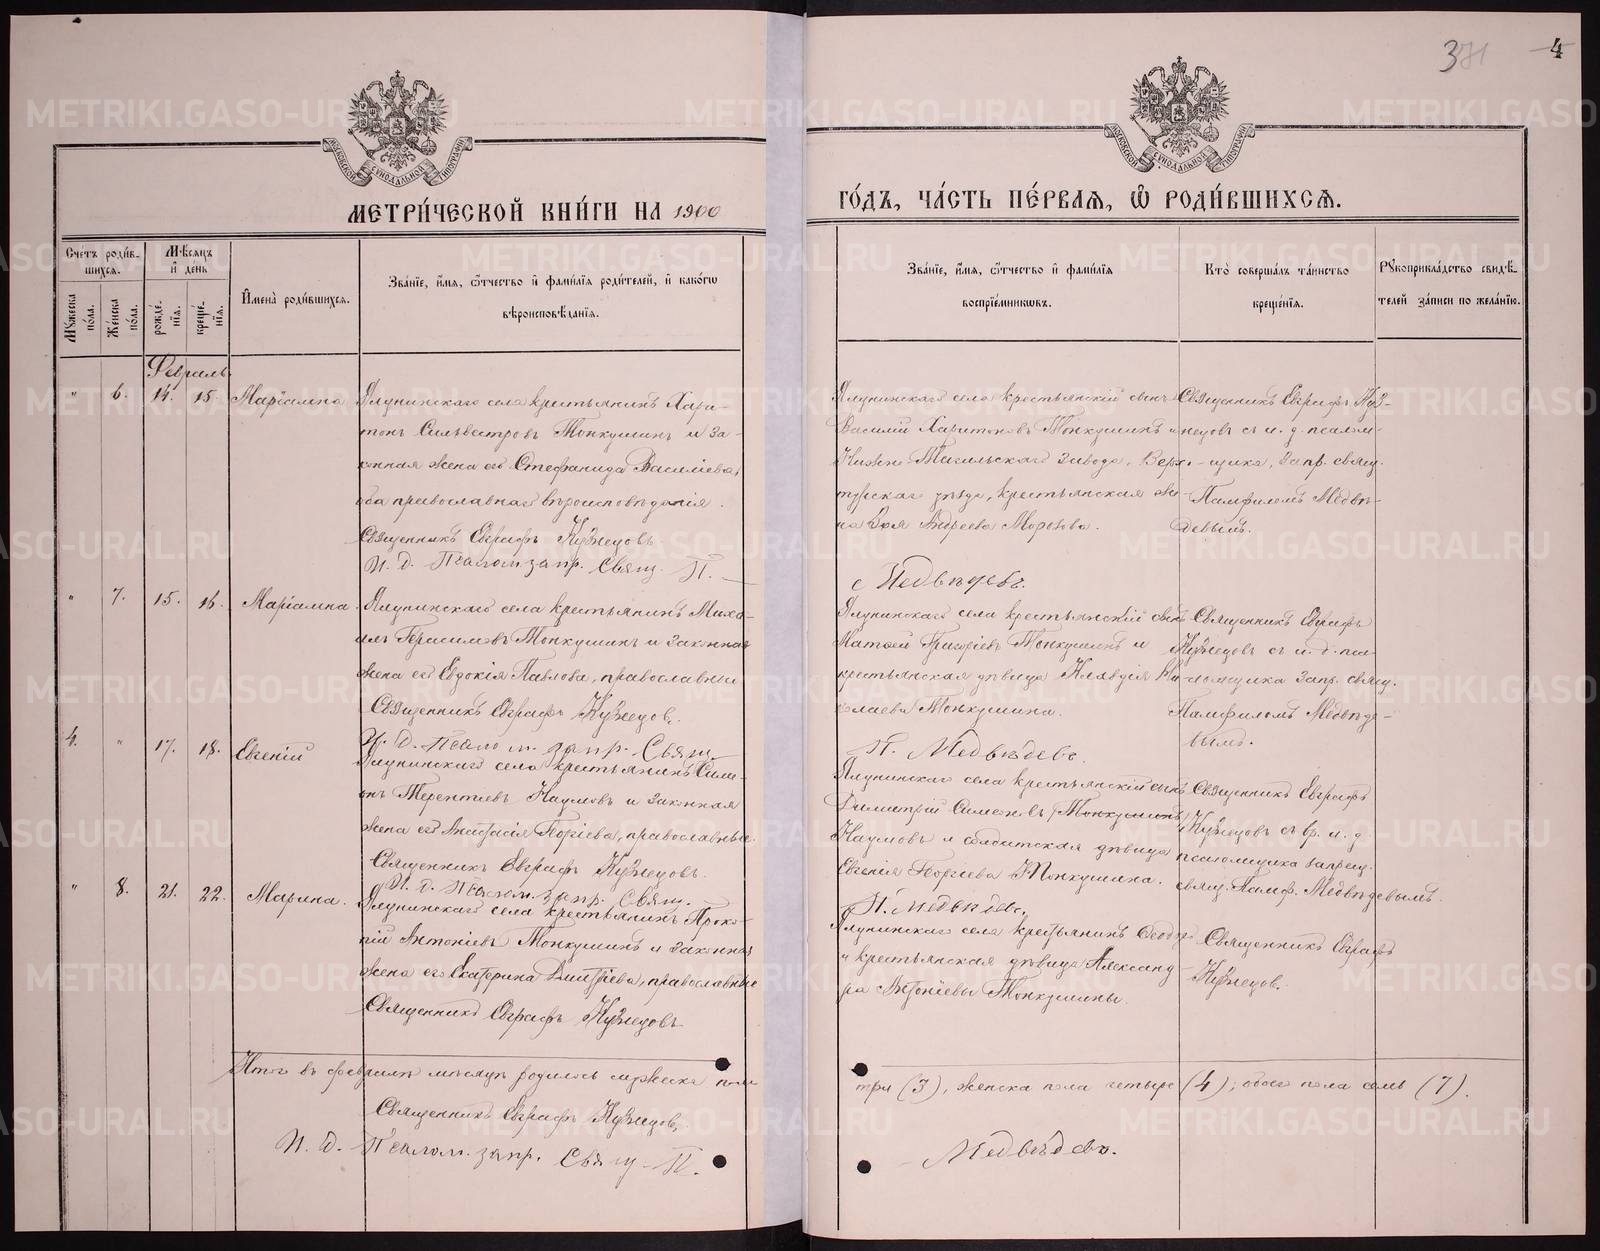 371 4
МЕТРИ́ЧЕСКОЙ КНИ́ГИ НА 1900
ГО́ДЪ, ЧА́СТЬ ПЕ́РВАЯ, Ѡ҆ РОДИ́ВШИХСѦ.
Счетъ роди́вшихся.
Мꙋжеска по́ла.
Же́нска по́ла.
Мѣ́сяцъ и҆ де́нь
рожде́нїя.
креще́нїя.
И҆мена̀ роди́вшихся.
Зва́нїе, и҆́мя, ѻ҆́тчество и҆ фами́лїя роди́телей, и҆ како́гѡ
вѣроисповѣ́данїя.
Зва́нїе, и҆́мя, ѻ҆́тчество и҆ фами́лїя
воспрїе́мникѡвъ.
Кто̀ соверша́лъ та́инство
креще́нїя.
Рꙋкоприкла́дство свидѣ́-
телей за́писи по жела́нїю.
Февраль.
" 6. 14. 15. Марїамна
Ялунинскаго села крестьянинъ Хари-
тонъ Сильвестровъ Топкушинъ и за-
конная жена его Стефанида Васильева,
оба православнаго вѣроисповѣданія.
Священникъ Евграфъ Кузнецовъ
И. д. Псалом. запр. Свящ. П.
Ялунинскаго села крестьянскій сынъ
Василій Харитоновъ Топкушинъ и
Нижне-Тагильскаго завода, Верхо-
турскаго уѣзда, крестьянская же-
на Зоя Андреева Морозова.
Медвѣдевъ.
Священникъ Евграфъ Куз-
нецовъ съ и. д. псалом-
щика, запр. свящ.
Памфиломъ Медвѣ-
девымъ.
" 7. 15. 16. Марїамна
Ялунинскаго села крестьянинъ Миха-
илъ Герасимовъ Топкушинъ и законная
жена его Евдокія Павлова, православные
Священникъ Евграфъ Кузнецовъ.
И. д. Псалом. запр. Свящ.
Ялунинскаго села крестьянскій сынъ
Матѳей Григорьевъ Топкушинъ и
крестьянская дѣвица Клавдія Ни-
колаева Топкушина.
П. Медвѣдевъ.
Священникъ Евграфъ
Кузнецовъ съ и. д. пса-
ломщика запр. свящ.
Памфиломъ Медвѣде-
вымъ.
4. " 17. 18. Евгеній
Ялунинскаго села крестьянинъ Симе-
онъ Терентіевъ Наумовъ и законная
жена его Анастасія Георгіева, православные.
Священникъ Евграфъ Кузнецовъ.
И. д. Псалом. запр. Свящ.
Ялунинскаго села крестьянскій сынъ
Димитрій Симеоновъ Топкушинъ
Наумовъ и солдатская дѣвица
Евгенія Георгіева Топкушина.
П. Медвѣдевъ.
Священникъ Евграфъ
Кузнецовъ съ вр. и. д.
псаломщика запрещ.
свящ. Памф. Медвѣдевымъ.
" 8. 21. 22. Марина.
Ялунинскаго села крестьянинъ Проко-
пій Антоніевъ Топкушинъ и законная
жена его Екатерина Димитріева, православные
Священникъ Евграфъ Кузнецовъ
Ялунинскаго села крестьянинъ Ѳеодоръ
и крестьянская дѣвица Александ-
ра Антоніевы Топкушины.
Священникъ Евграфъ
Кузнецовъ.
Итого въ февралѣ мѣсяцѣ родилось мужеска пола
три (3), женска пола четыре (4); обоего пола семь (7).
Священникъ Евграфъ Кузнецовъ.
И. д. Псалом. запр. Свящ. П.
Медвѣдевъ.